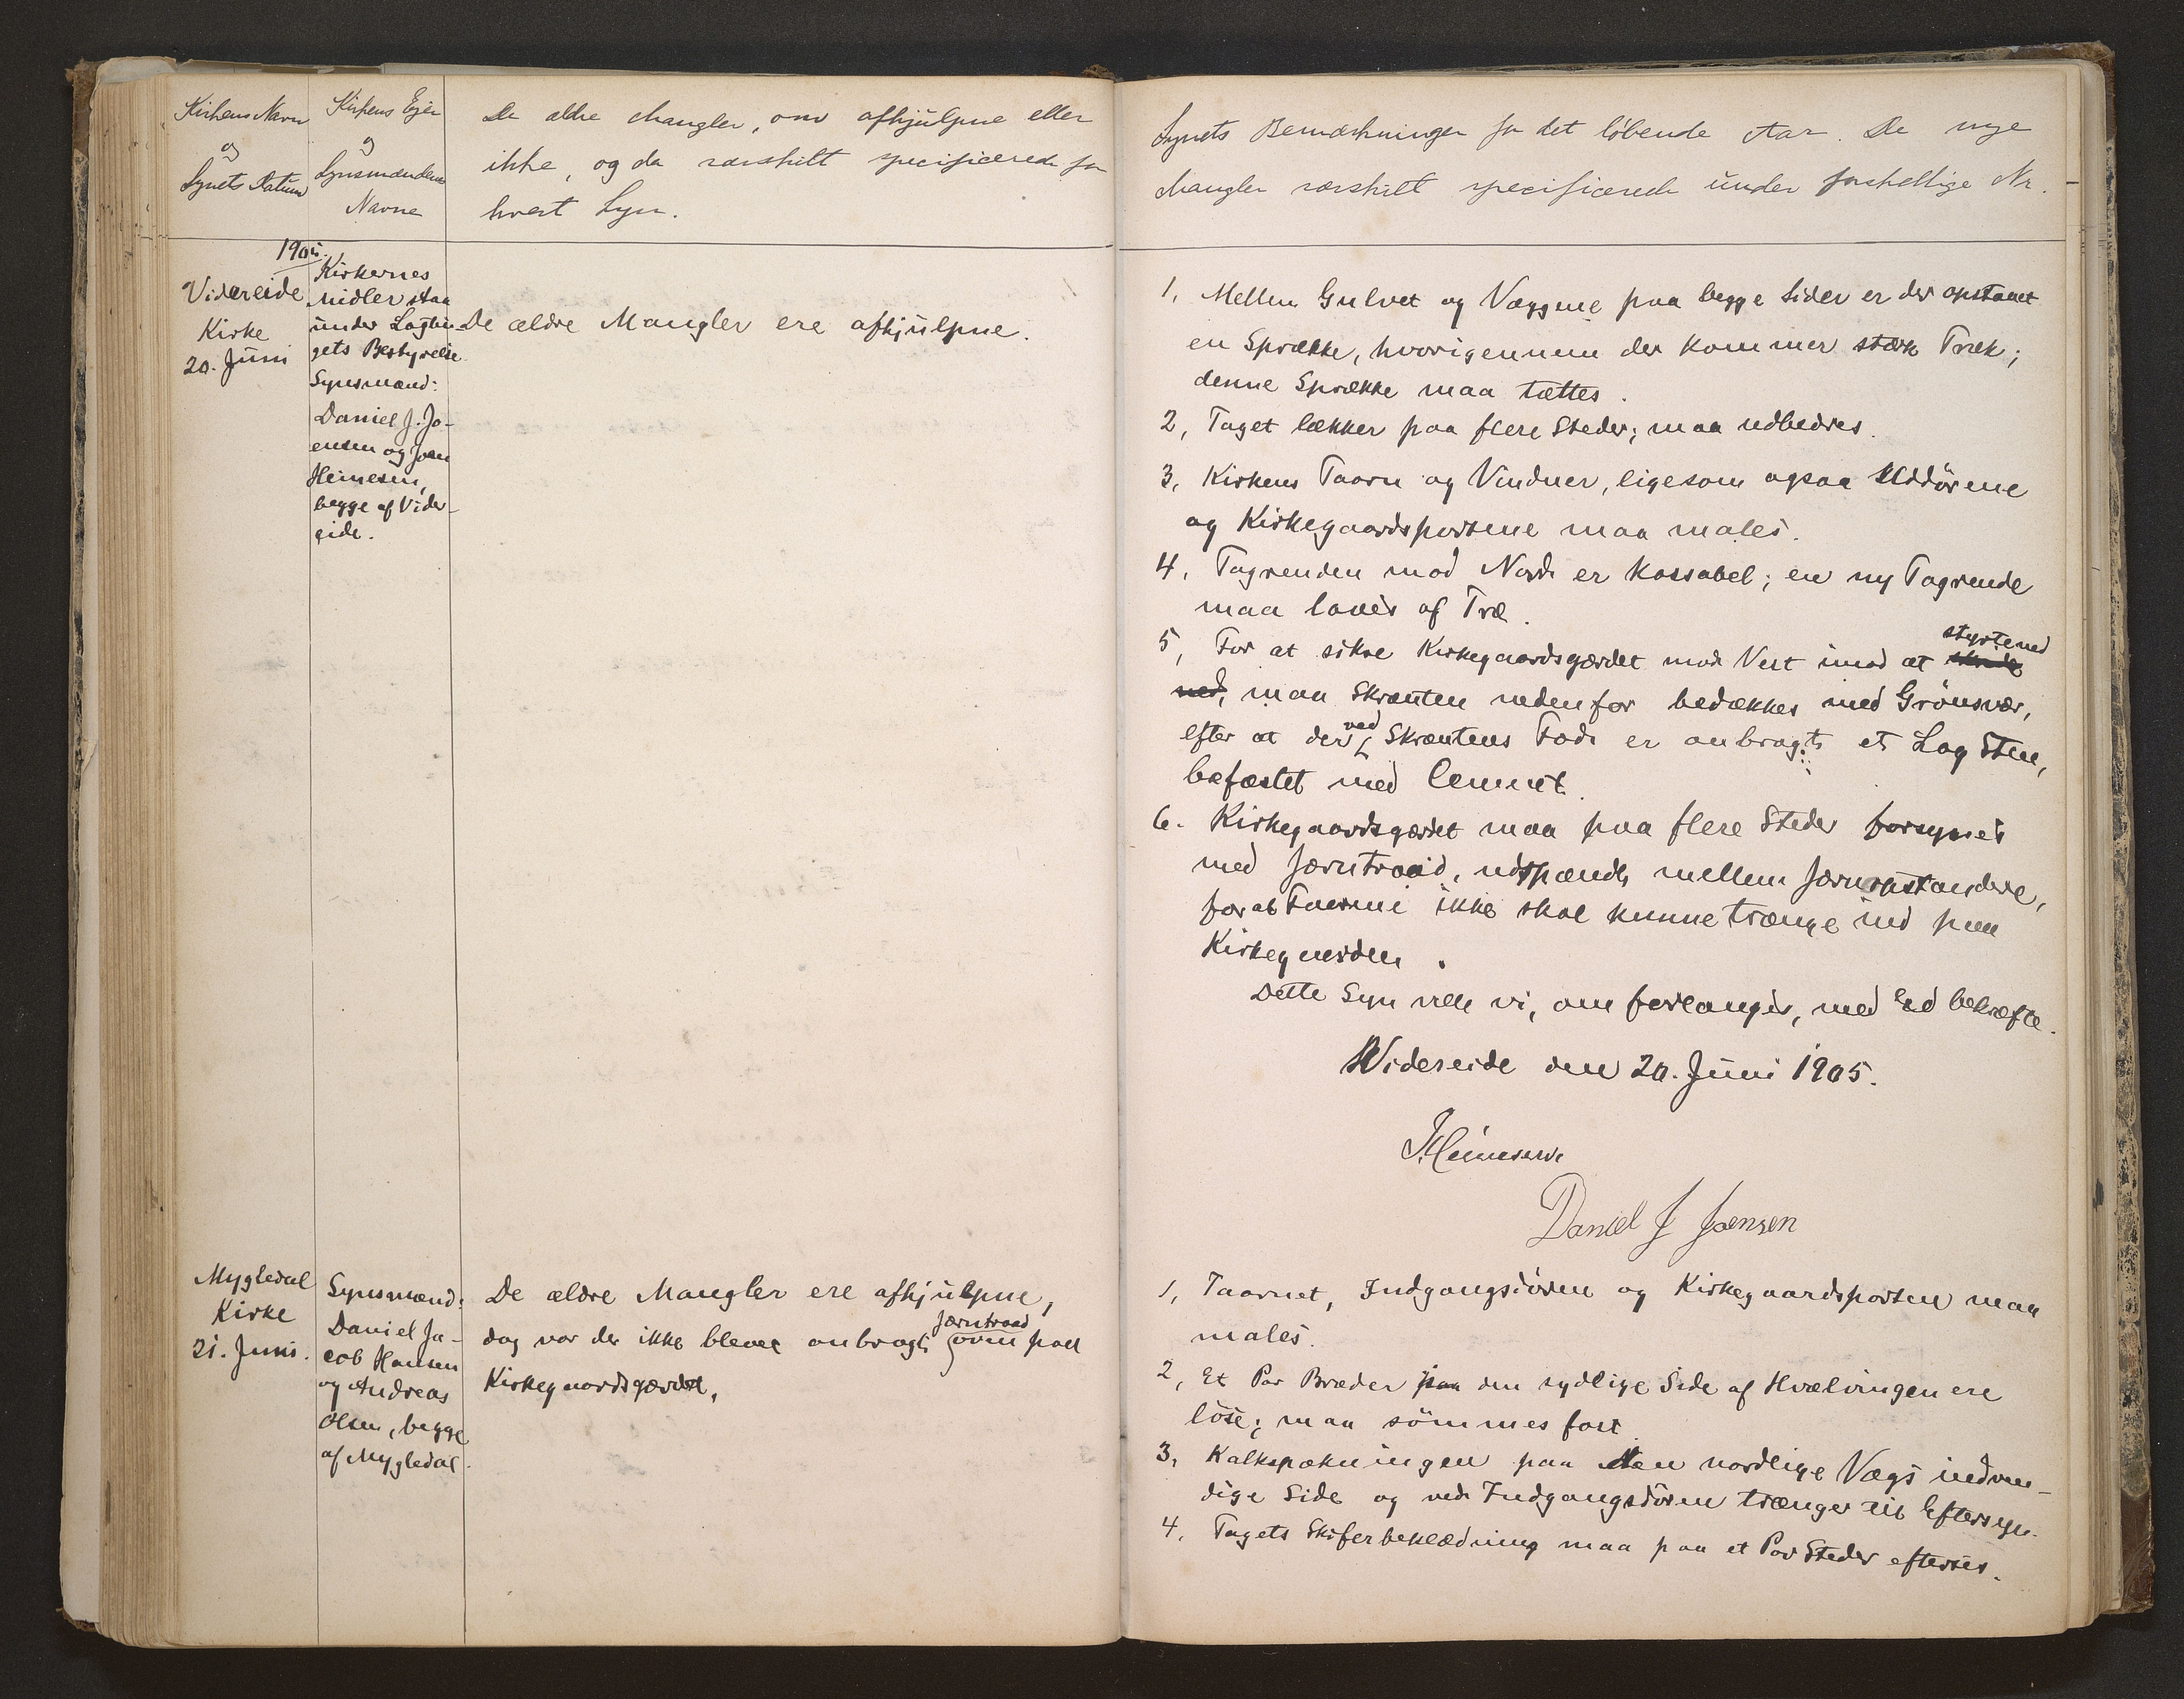 Kirkens Navn
og
Synets Datum
Kirkens Ejer
og
Synsmændenes
Navne
De ældre Mangler, om afhjulpne eller
ikke, og da særskilt specificerede for
hvert Syn.
1905.
Videreide
Kirke
20. Juni
Kirkernes
Midler staa
under Lagtin-
gets Bestyrelse
Synsmænd:
Daniel J. Jo-
ensen og Joen
Heinesen,
begge af Vider-
eide.
De ældre Mangler ere afhjulpne.
Mygledal
Kirke
21. Juni.
Synsmænd:
Daniel Ja-
cob Hansen
og Andreas
Olsen, begge
af Mygledal.
De ældre Mangler ere afhjulpne,
dog var der ikke blevet anbragt Jærntraad oven paa
Kirkegaardsgærdet.
Synets Bemærkninger for det løbende Aar. De nye
Mangler særskilt specificerede under forskellige Nr.
1, Mellem Gulvet og Væggene paa begge Sider er der opstaaet
en Sprække, hvorigennem der kommer stærk Træk;
denne Sprække maa tættes.
2, Taget lækker paa flere Steder; maa udbedres.
3, Kirkens Taarn og Vinduer, ligesom ogsaa Uddørene
og Kirkegaardsportene maa males.
4, Tagrenden mod Nord er kassabel; en ny Tagrende
maa laves af Træ.
5, For at sikre Kirkegaardsgærdet mod Vest imod at styrte ned
ned, maa Skrænten nedenfor bedækkes med Grønsvær,
efter at der ved Skræntens Fod er anbragt et Lag Sten,
befæstet med Cement.
6. Kirkegaardsgærdet maa paa flere Steder forsynes
med Jærntraad, udspændt mellem Jærnopstandere,
for at Faarene ikke skal kunne trænge ind paa
Kirkegaarden.
Dette Syn ville vi, om forlanges, med Ed bekræfte.
Videreide den 20. Juni 1905.
J. Heinesen
Daniel J Joensen
1, Taarnet, Indgangsdøren og Kirkegaardsporten maa
males.
2, Et Par Bræder paa den sydlige Side af Hvælvingen ere
løse; maa sømmes fast.
3, Kalkspækningen paa den nordlige Vægs indven-
dige Side og ved Indgangsdøren trænger til Eftersyn.
4, Tagets Skiferbeklædning maa paa et Par Steder efterses.